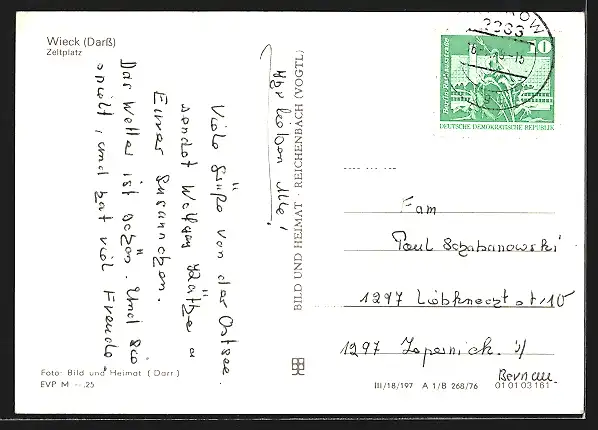 Wieck (Darß)
Zeltplatz
Ihr lieben alle!
Viele Grüße von der Ostsee
sendet Wolfgang Kätze u
Eure Susannchen.
Das Wetter ist schön. Und sie
spielt, und hat viel Freude.
Foto: Bild und Heimat (Darr)
EVP M –,25
BILD UND HEIMAT · REICHENBACH (VOGTL)
2383
10
Berlin
DEUTSCHE DEMOKRATISCHE REPUBLIK
Fam
Paul Schabanowski
1297 Liebknechtst. 10
1297 Zepernick. b/
Bernau
III/18/197 A 1/B 268/76 01 01 03 161